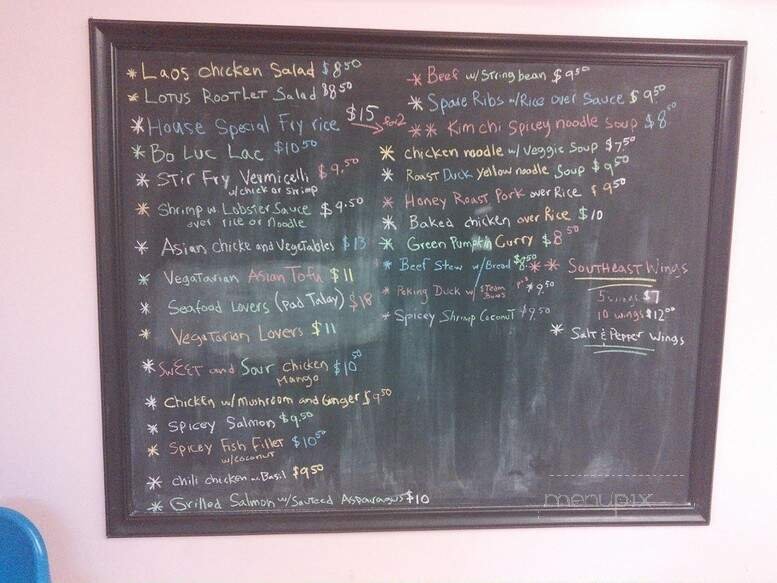 * Laos chicken Salad $8⁵⁰
* LOTUS ROOTLET Salad $8⁵⁰
* House Special Fry rice $15 → for 2
* Bo Luc Lac $10⁵⁰
* STIR FRY Vermicelli $9.50
w/chick or shrimp
* Shrimp w. Lobster Sauce $9.50
over rice or Noodle
* Asian chicke and vegeTables $13
* VegaTarian Asian Tofu $11
* Seafood Lovers (Pad Talay) $18
* VegaTarian Lovers $11
* SWEET and Sour chicken $10⁵⁰
Mango
* Chicken w/ mushroom and Ginger $9⁵⁰
* SPICEY Salmon $9.50
* SPICEY Fish FilleT $10⁵⁰
w/coconut
* chili chicken w. Basil $9⁵⁰
* Grilled Salmon w/ Sauteed Asparagus $10
* Beef w/ String bean $9⁵⁰
* Spare Ribs w/Rice over Sauce $9⁵⁰
** Kim chi Spicey noodle Soup $8⁵⁰
* chicken noodle w/ Veggie Soup $7⁵⁰
* Roast Duck Yellow noodle Soup $9⁵⁰
* Honey Roast Pork over Rice $9⁵⁰
* Baked chicken over Rice $10
* Green Pumpkin Curry $8⁵⁰
* Beef Stew w/Bread $8⁵⁰
* Peking Duck w/ STEam Buns $9⁵⁰
* Spicey Shrimp Coconut $9.50
** SOUTHEAST Wings
5 wings $7
10 wings $12⁰⁰
* Salt & Pepper Wings
menupix